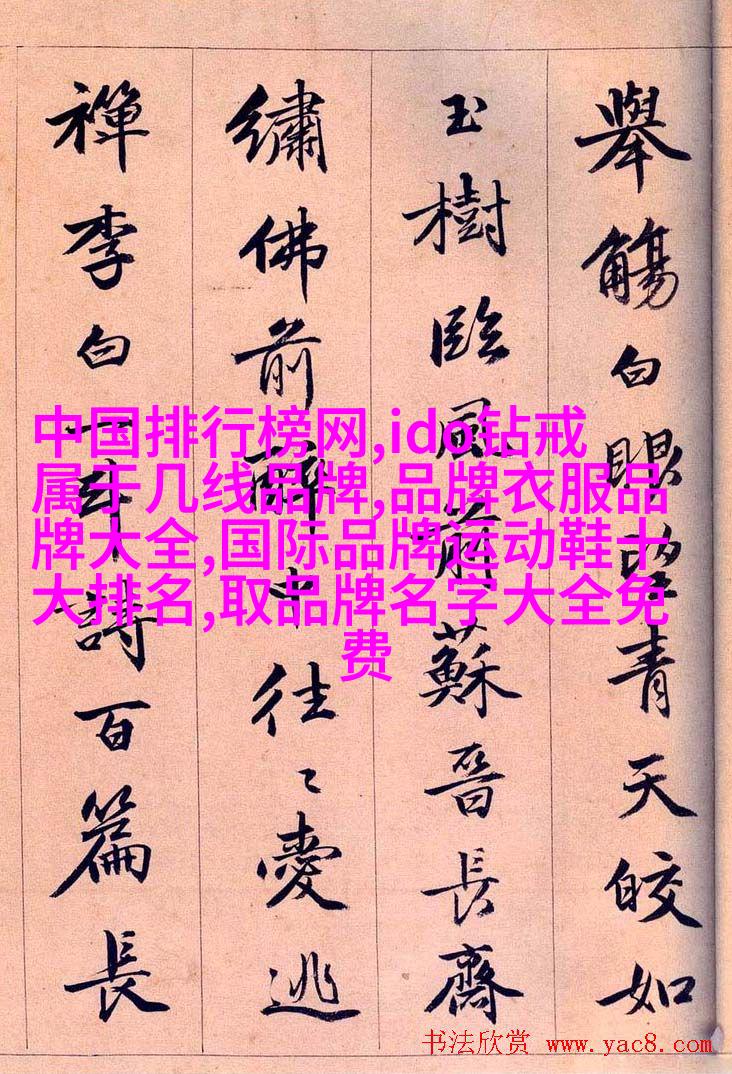 舉觴白眼望青天皎如
玉樹臨風前蘇晉長齋
繡佛前醉中往〻愛逃
禪李白一斗詩百篇長
中国排行榜网,ido钻戒
属于几线品牌,品牌衣服品
牌大全,国际品牌运动鞋十
大排名,取品牌名字大全免
费
书法欣赏 www.yac8.com